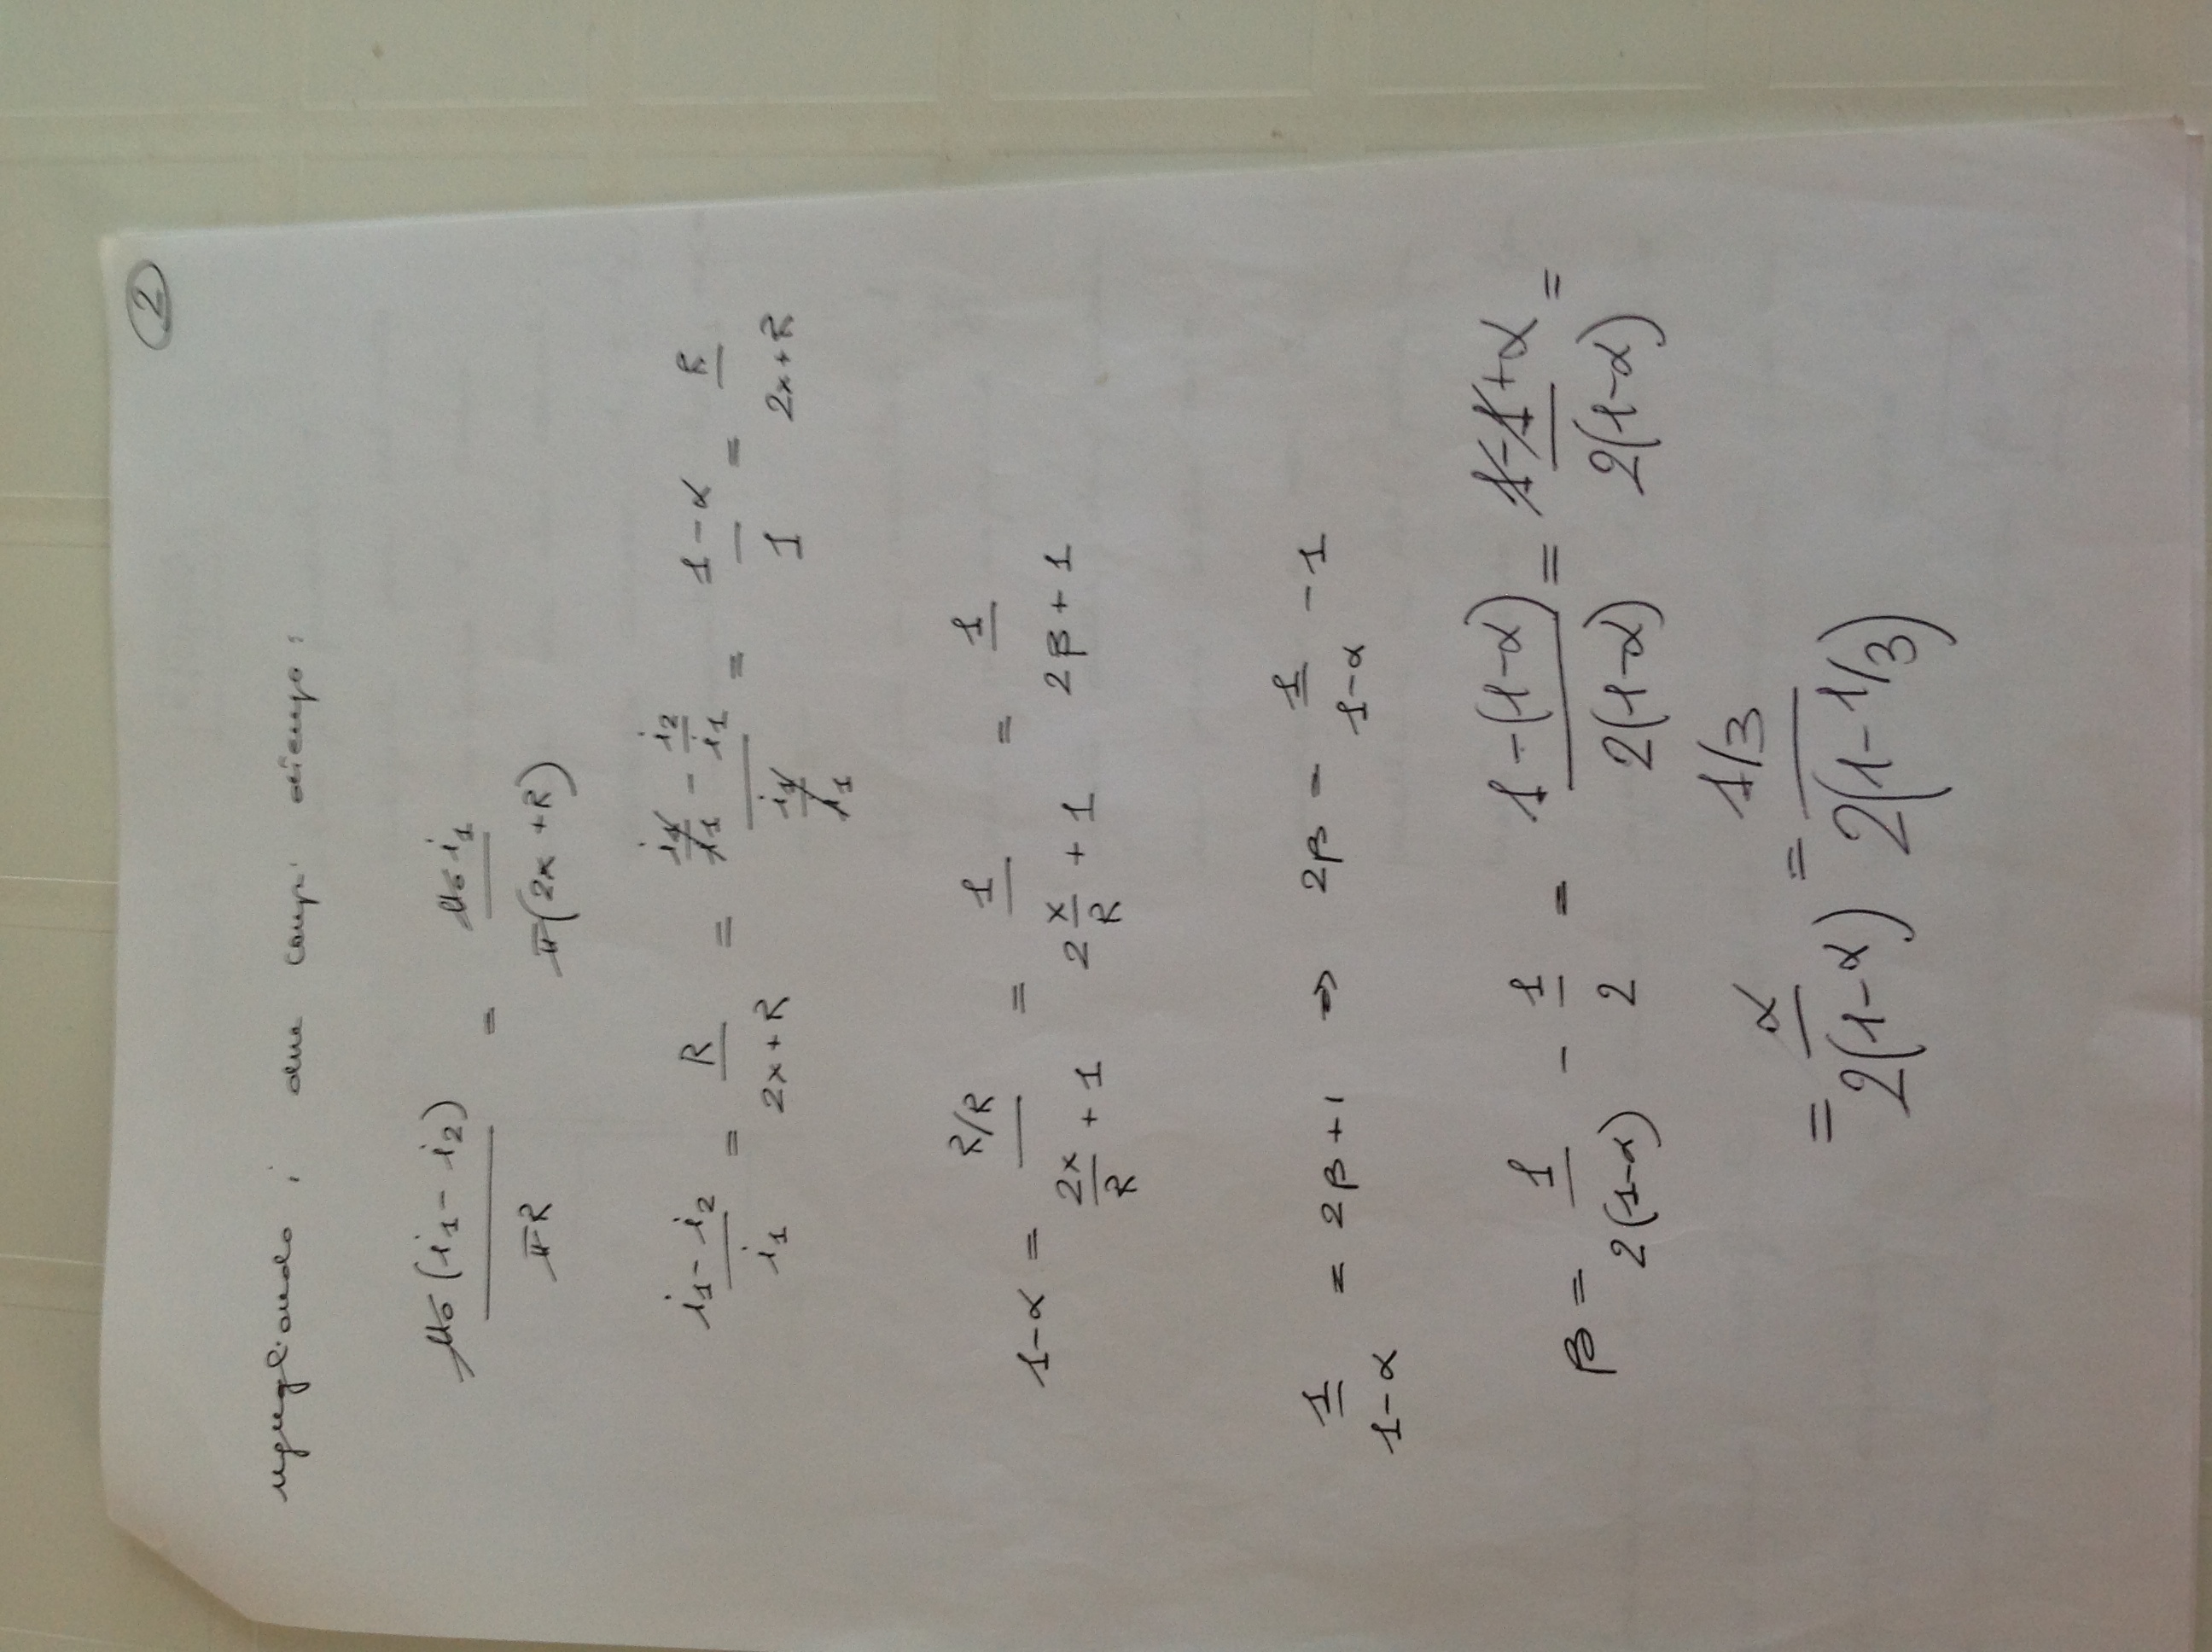 2
uguagliando i due campi ottengo:
μ₀(i₁ - i₂) / πR = μ₀ i₁ / π(2x + R)
(i₁ - i₂) / i₁ = R / (2x + R) = (i₁/i₁ - i₂/i₁) / (i₁/i₁) = (1 - α) / 1 = R / (2x + R)
1 - α = (R/R) / (2x/R + 1) = 1 / (2 x/R + 1) = 1 / (2β + 1)
1 / (1 - α) = 2β + 1 ⇒ 2β = 1 / (1 - α) - 1
β = 1 / 2(1-α) - 1/2 = (1 - (1-α)) / 2(1-α) = (1 - 1 + α) / 2(1-α) =
= α / 2(1-α) = (1/3) / 2(1 - 1/3)